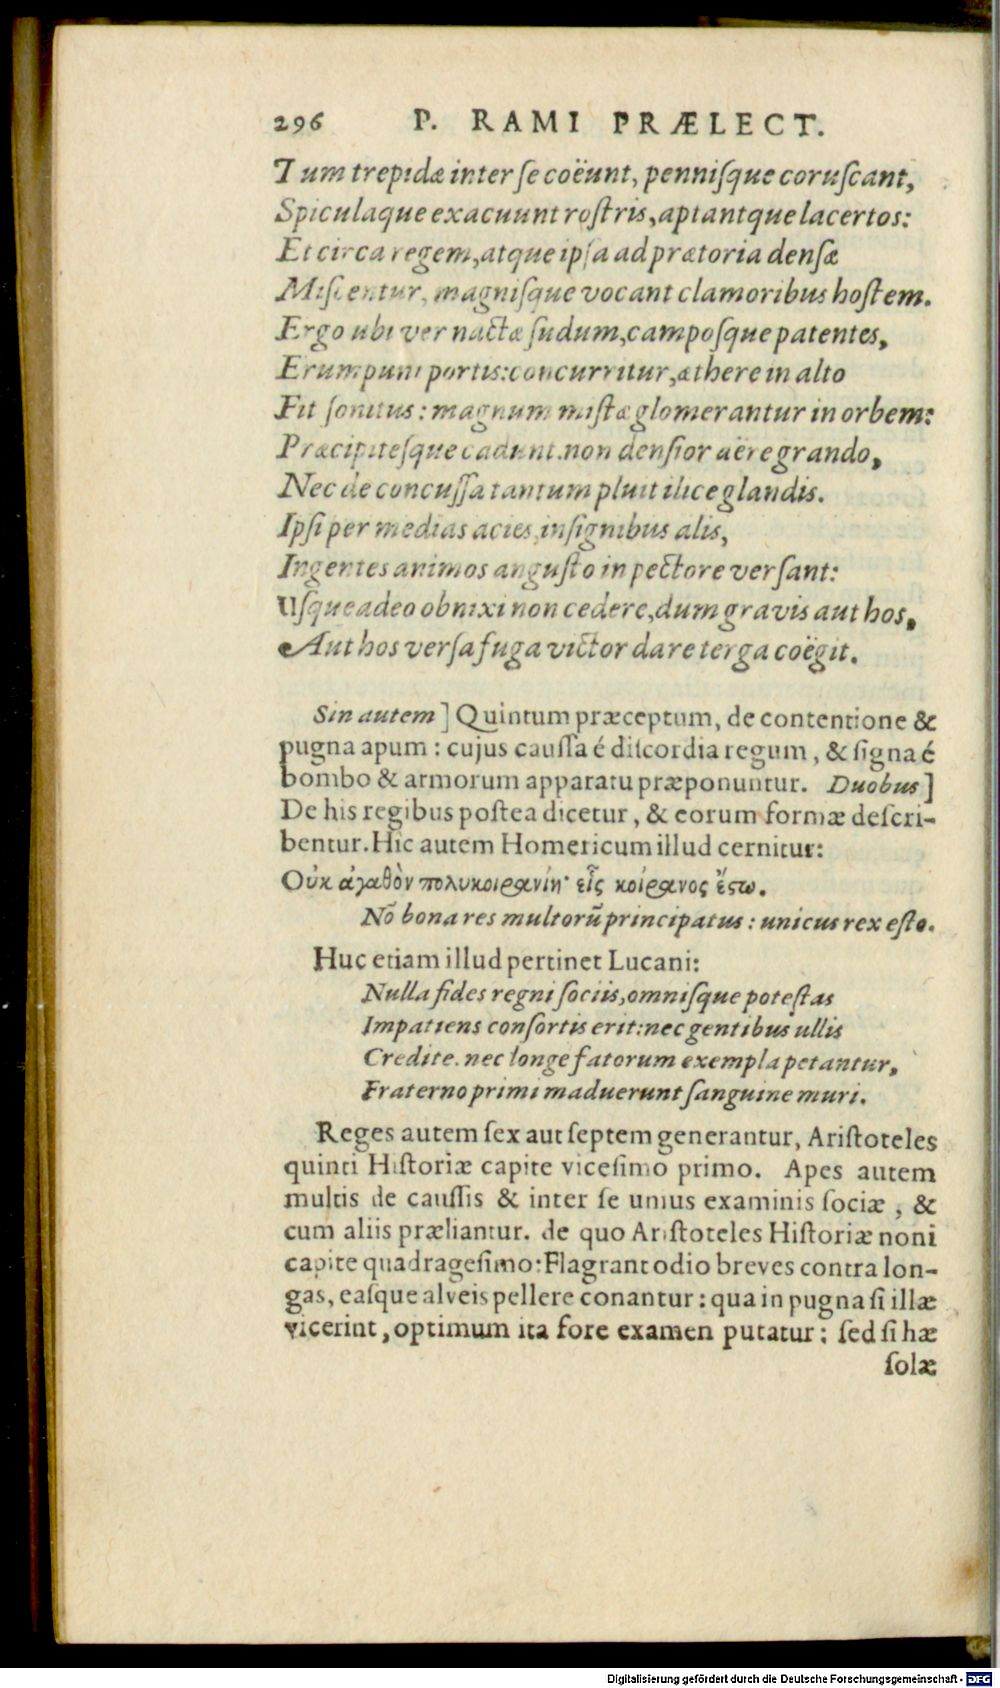 296 P. RAMI PRÆLECT.
Tum trepidæ inter ſe coëunt, penniſque coruſcant,
Spiculaque exacuunt roſtris, aptantque lacertos:
Et circa regem, atque ipſa ad prætoria denſæ
Miſcentur, magniſque vocant clamoribus hoſtem.
Ergo ubi ver nactæ ſudum, campoſque patentes,
Erumpunt portis: concurritur, æthere in alto
Fit ſonitus: magnum miſtæ glomerantur in orbem:
Præcipiteſque cadunt. non denſior aëre grando,
Nec de concuſſa tantum pluit ilice glandis.
Ipſi per medias acies, inſignibus alis,
Ingentes animos anguſto in pectore verſant:
Uſque adeo obnixi non cedere, dum gravis aut hos,
Aut hos verſa fuga victor dare terga coëgit.
Sin autem] Quintum præceptum, de contentione &
pugna apum: cujus cauſſa é diſcordia regum, & ſigna é
bombo & armorum apparatu præponuntur. Duobus]
De his regibus poſtea dicetur, & eorum formæ deſcri-
bentur. Hic autem Homericum illud cernitur:
Οὐκ ἀγαθὸν πολυκοιρανίη· εἷς κοίρανος ἔστω.
Nō bona res multorū principatus: unicus rex eſto.
Huc etiam illud pertinet Lucani:
Nulla fides regni ſociis, omniſque poteſtas
Impatiens conſortis erit: nec gentibus ullis
Credite. nec longe fatorum exempla petantur,
Fraterno primi maduerunt ſanguine muri.
Reges autem ſex aut ſeptem generantur, Ariſtoteles
quinti Hiſtoriæ capite viceſimo primo. Apes autem
multis de cauſſis & inter ſe unius examinis ſociæ, &
cum aliis præliantur. de quo Ariſtoteles Hiſtoriæ noni
capite quadrageſimo: Flagrant odio breves contra lon-
gas, eaſque alveis pellere conantur: qua in pugna ſi illæ
vicerint, optimum ita fore examen putatur: ſed ſi hæ
ſolæ
Digitalisierung gefördert durch die Deutsche Forschungsgemeinschaft - DFG